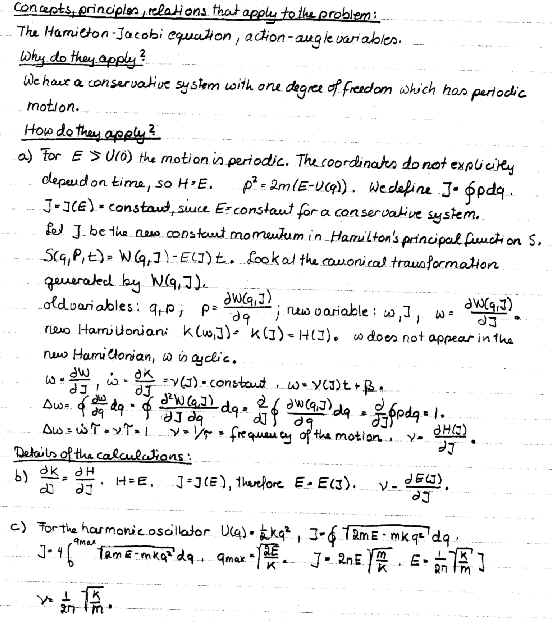 Concepts, principles, relations that apply to the problem:
The Hamilton-Jacobi equation, action-angle variables.
Why do they apply?
We have a conservative system with one degree of freedom which has periodic
motion.
How do they apply?
a) For E ≥ U(0) the motion is periodic. The coordinates do not explicitly
depend on time, so H=E. p² = 2m(E-U(q)). We define J = ∮pdq.
J=J(E) = constant, since E=constant for a conservative system.
Let J be the new constant momentum in Hamilton's principal function S.
S(q,P,t) = W(q,J) - E(J)t. Look at the canonical transformation
generated by W(q,J).
old variables: q,p; p = ∂W(q,J)/∂q; new variable: w,J, w = ∂W(q,J)/∂J.
new Hamiltonian: K(w,J) = K(J) = H(J). w does not appear in the
new Hamiltonian, w is cyclic.
w = ∂W/∂J, ẇ = ∂K/∂J = ν(J) = constant, w = ν(J)t + β.
Δw = ∮ ∂w/∂q dq = ∮ ∂²W(q,J)/∂J∂q dq = ∂/∂J ∮ ∂W(q,J)/∂q dq = ∂/∂J ∮pdq = 1.
Δw = ẇT = νT = 1 ν = 1/T = frequency of the motion. ν = ∂H(J)/∂J.
Details of the calculations:
b) ∂K/∂J = ∂H/∂J. H=E. J=J(E), therefore E=E(J). ν = ∂E(J)/∂J.
c) For the harmonic oscillator U(q) = ½kq², J = ∮ √2mE - mkq² dq.
J = 4∫₀^qmax √2mE - mkq² dq. qmax = √2E/k. J = 2πE √m/k. E = 1/2π √k/m J
ν = 1/2π √k/m.